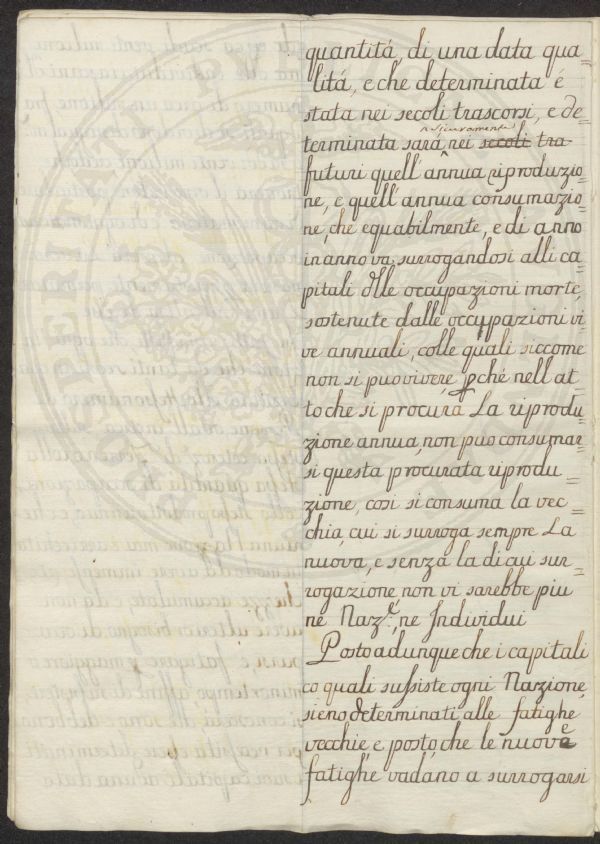 quantitá, di una data qua=
lità, e che determinata é
stata nei secoli trascorsi, e de=
sicuramente
terminata sará nei secoli tra
futuri quell' annua riproduzio=
ne, e quell' annua consumazio=
ne, che equabilmente, e di anno
in anno va surrogandosi alli ca=
pitali dlle occupazioni morte,
sostenute dalle occupazioni vi=
ve annuali, colle quali siccome
non si puo vivere pché nell at=
to che si procura La riprodu=
zione annua, non puo consumar=
si questa procurata riprodu=
zione, cosi si consuma la vec=
chia, cui si surroga sempre La
nuova, e senza la di cui sur=
rogazione non vi sarebbe piu
ne Naz.e, ne Individui
Posto adunque che i capitali
co quali sussiste ogni Nazione,
sieno determinati alle fatighe
vecchie, e posto, che le nuove
fatighe vadano a surrogarsi
PROSPERITATI PUBLICAE